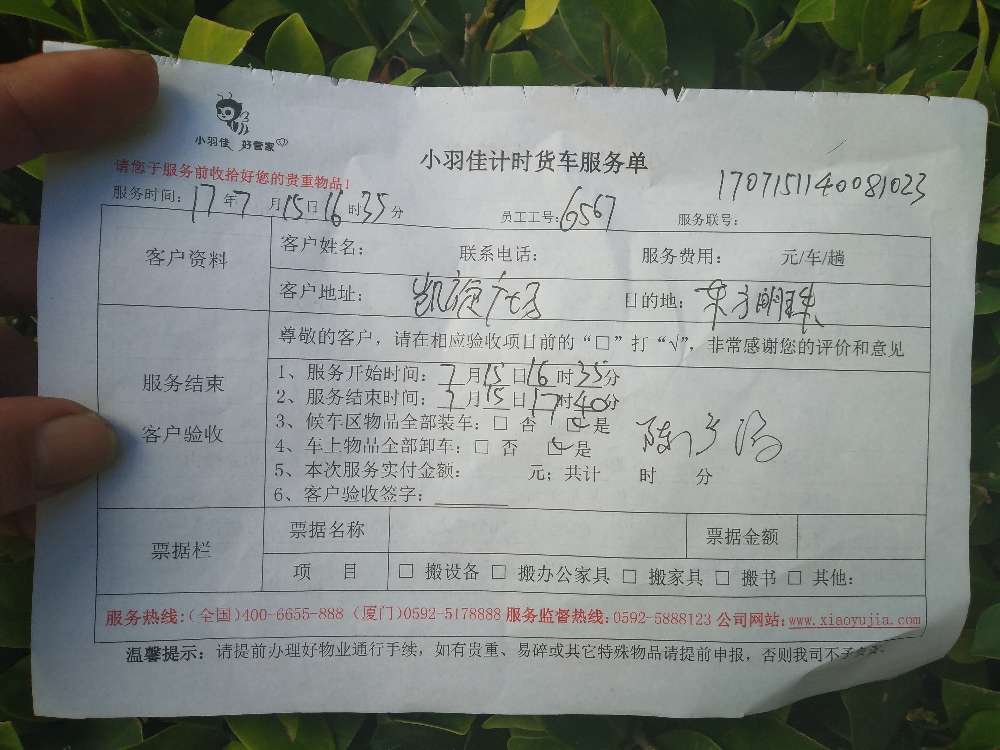 小羽佳 好管家
小羽佳计时货车服务单
请您于服务前收拾好您的贵重物品!
1707151140081023
服务时间: 17年7月15日16时35分 员工工号: 6567 服务联号:
客户资料 客户姓名: 联系电话: 服务费用: 元/车/趟
客户地址: 凯旋广场 目的地: 东方明珠
尊敬的客户，请在相应验收项目前的“□”打“√”，非常感谢您的评价和意见
服务结束
客户验收
1、服务开始时间: 7月15日16时35分
2、服务结束时间: 7月15日17时40分
3、候车区物品全部装车: □ 否 ☑是
4、车上物品全部卸车: □ 否 ☑是
5、本次服务实付金额: 元; 共计 时 分
6、客户验收签字:
票据栏 票据名称 票据金额
项 目 □ 搬设备 □ 搬办公家具 □ 搬家具 □ 搬书 □ 其他:
服务热线:(全国)400-6655-888 (厦门)0592-5178888 服务监督热线:0592-5888123 公司网站: www.xiaoyujia.com
温馨提示: 请提前办理好物业通行手续，如有贵重、易碎或其它特殊物品请提前申报，否则我司不予